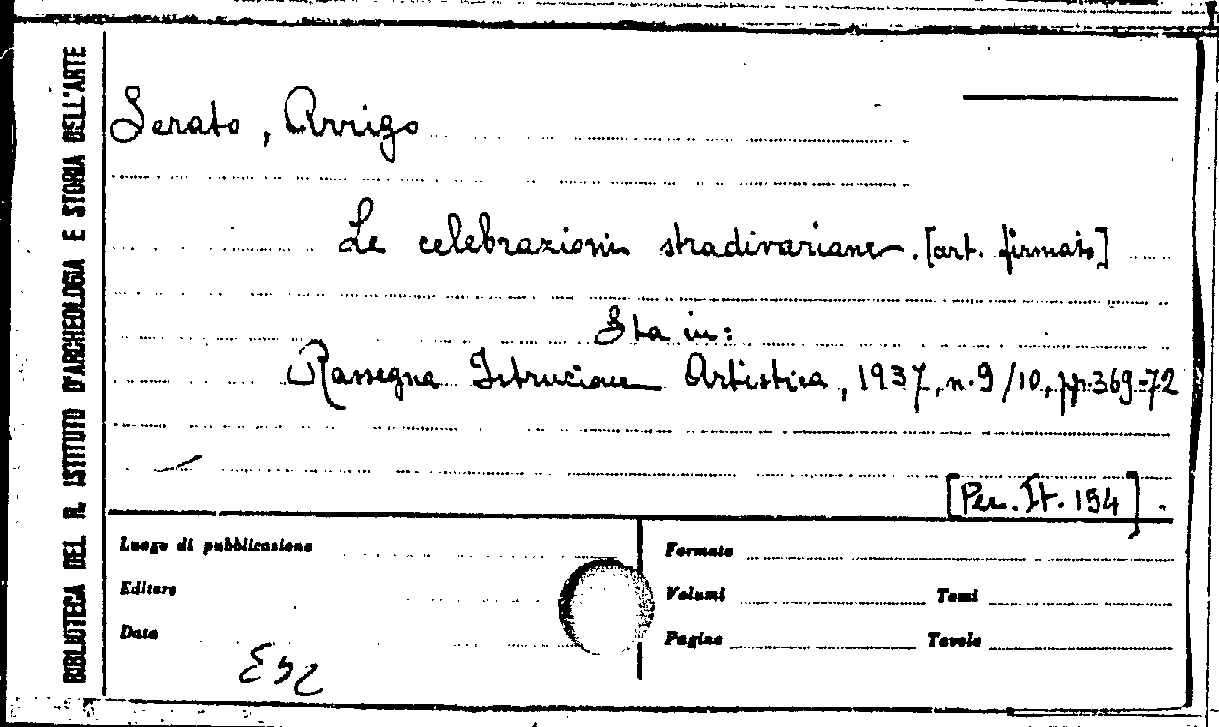 BIBLIOTECA DEL R. ISTITUTO D'ARCHEOLOGIA E STORIA DELL'ARTE
Serato, Arrigo
Le celebrazioni stradivariane. [art. firmato]
Sta in:
Rassegna Istruzione Artistica, 1937, n. 9/10, pp. 369-72
[Per. It. 154].
Luogo di pubblicazione
Editore
Data
Formato
Volumi Tomi
Pagine Tavole